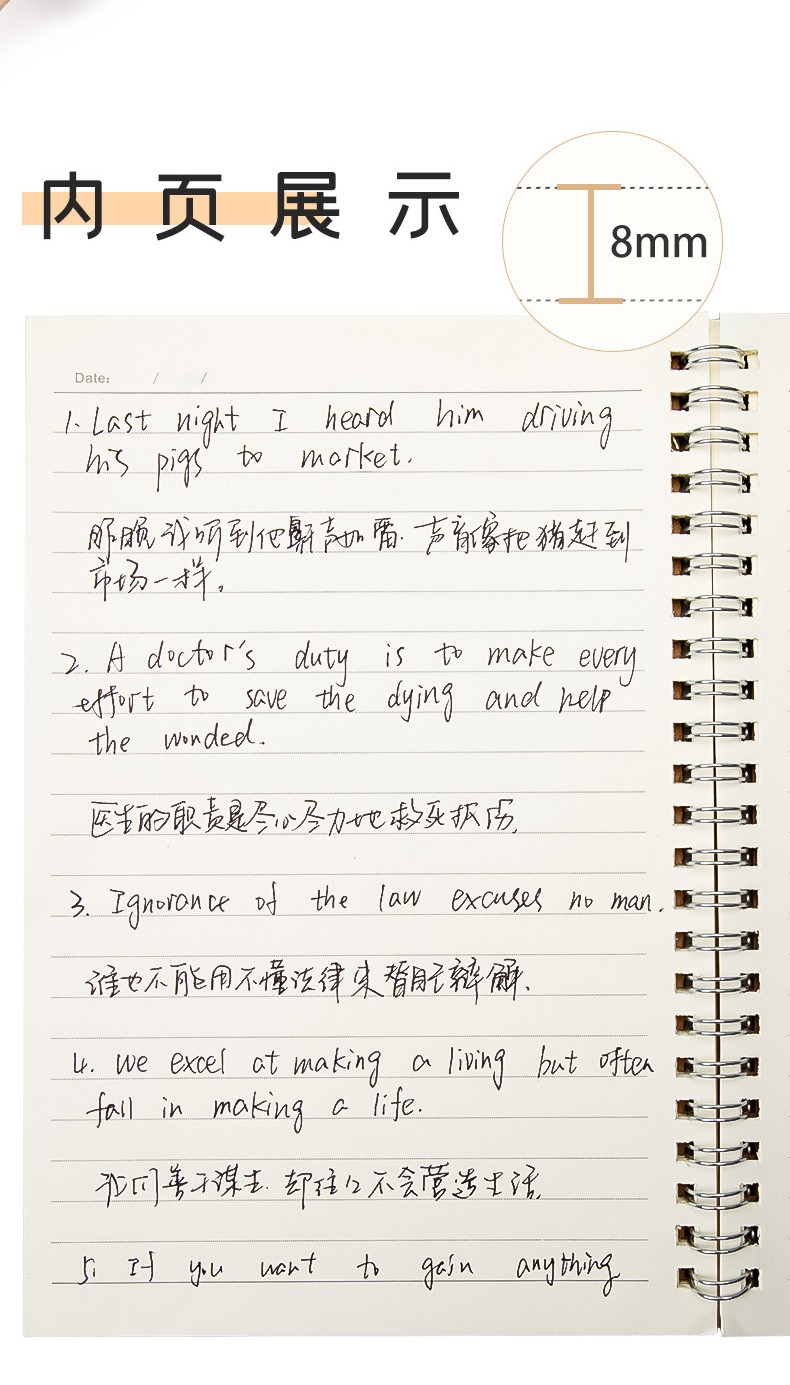 内页展示
8mm
Date: / /
1. Last night I heard him driving
his pigs to market.
昨晚我听到他鼾声如雷. 声音像把猪赶到
市场一样。
2. A doctor's duty is to make every
effort to save the dying and help
the wonded.
医生的职责是尽心尽力地救死扶伤.
3. Ignorance of the law excuses no man.
谁也不能用不懂法律来替自己辩解.
4. We excel at making a living but often
fall in making a life.
我们善于谋生. 却往往不会营造生活.
5. If you want to gain anything